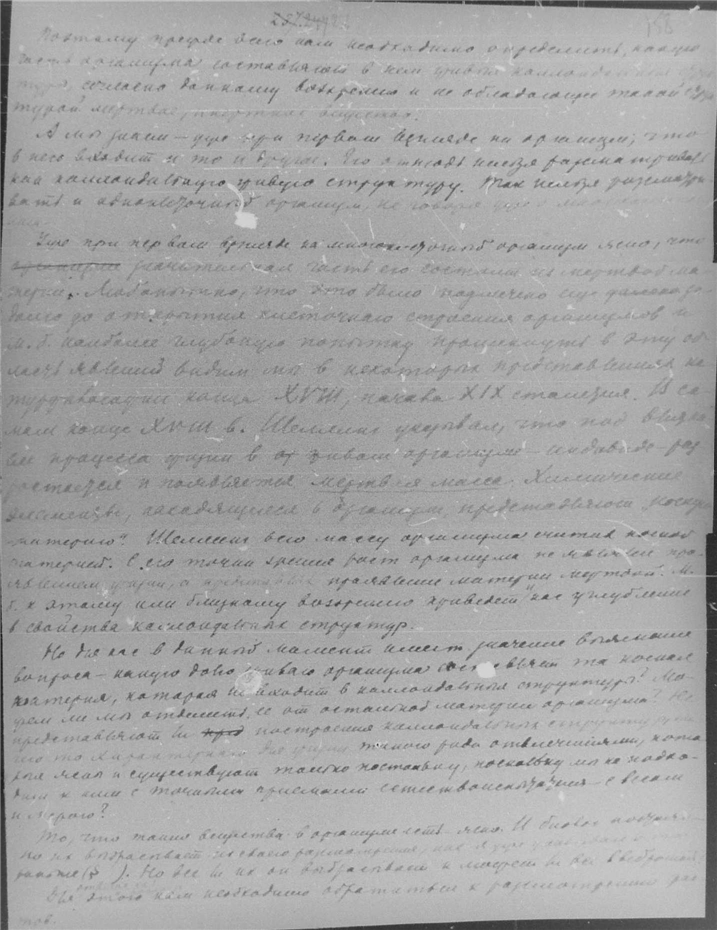 Поэтому прежде всего нам необходимо определить, какую
часть организма составляют в нем живые коллоидальные струк
туры, согласно данному воззрению и не обладающие такой струк
турой мертвые, инертные вещества.
А мы знаем – уже при первом взгляде на организм, что
в него входит и то и другое. Его отнюдь нельзя рассматривать
как коллоидальную живую структуру. Так нельзя рассматри-
вать и одноклеточный организм, не говоря уже о многоклеточ
ном.
Уже при первом взгляде на многоклеточный организм ясно, что
значительная часть его состоит из мертвой ма-
терии. Любопытно, что это было подмечено еще задолго
до открытия клеточного строения организмов и
м.б. наиболее глубокую попытку проникнуть в эту об-
ласть явлений видим мы в некоторых представлениях на
турфилософии конца XVIII, начала XIX столетия. В са
мом конце XVIII в. Шеллинг указывал, что под влия
процесса жизни в живом организме – индивиде – раз
растается и появляется мертвая масса. Химические
элементы, находящиеся в организме, представляют косную
"материю". Шеллинг всю массу организма считал косной
материей. С его точки зрения рост организма не явля про-
явлением жизни, а проявление материи мертвой. М.
б. к этому или близкому воззрению приведет нас углубление
в свойства коллоидальных структур.
Но для нас в данный момент имеет значение выяснение
вопроса – какую долю живого организма составляет та косная
материя, которая не входит в коллоидальные структуры? Мо-
жем ли мы отделить ее от остальной материи организма? Не
представляют ли построения коллоидальных структур
что-то характерное для жизни такого рода отвлечениями, кото
рые ясны и существуют только постольку, поскольку мы не подхо-
дим к ним с точными приемами естествоиспытателя – с весом
и мерою?
То, что такие вещества в организме есть – ясно. И биолог
их выбрасывает из своего рассмотрения, как я уже указывал
раньше (§ ). Но все ли их он выбрасывает и может ли все
Для этого нам необходимо обратиться к рассмотрению фак
тов.